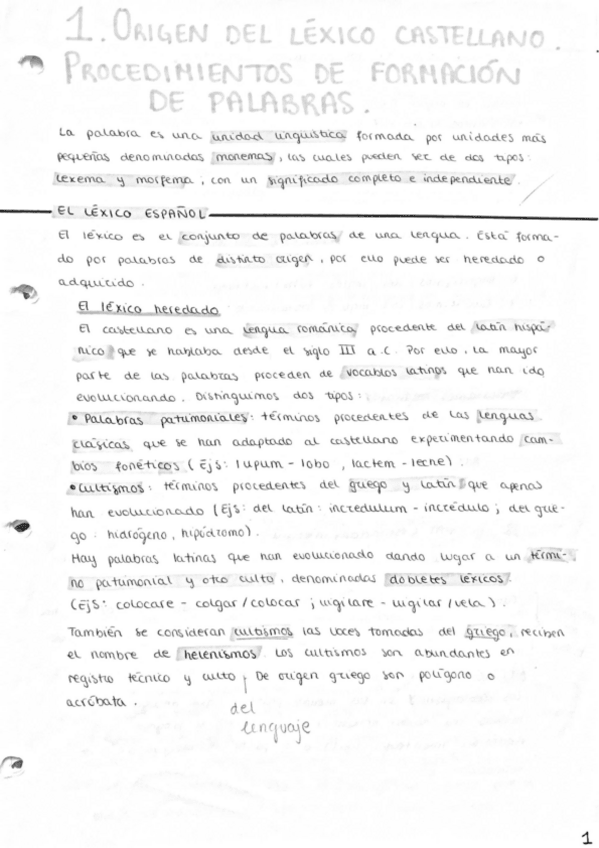 1. ORIGEN DEL LÉXICO CASTELLANO.
PROCEDIMIENTOS DE FORMACIÓN
DE PALABRAS.
La palabra es una unidad lingüística formada por unidades más
pequeñas denominadas monemas, las cuales pueden ser de dos tipos:
lexema y morfema, con un significado completo e independiente.
EL LÉXICO ESPAÑOL
El léxico es el conjunto de palabras de una lengua. Está forma-
do por palabras de distinto origen, por ello puede ser heredado o
adquirido.
El léxico heredado
El castellano es una lengua románica, procedente del latín hispá-
nico que se hablaba desde el siglo III a.C. Por ello, la mayor
parte de las palabras proceden de vocablos latinos que han ido
evolucionando. Distinguimos dos tipos:
• Palabras patrimoniales: términos procedentes de las lenguas
clásicas que se han adaptado al castellano experimentando cam-
bios fonéticos (Ejs: lupum - lobo, lactem - leche).
• Cultismos: términos procedentes del griego y latín que apenas
han evolucionado (Ejs: del latín: incredulum - incrédulo; del grie-
go: hidrógeno, hipódromo).
Hay palabras latinas que han evolucionado dando lugar a un térmi-
no patrimonial y otro culto, denominadas dobletes léxicos.
(Ejs: colocare - colgar/colocar; vigilare - vigilar/vela).
También se consideran cultismos las voces tomadas del griego, reciben
el nombre de helenismos. Los cultismos son abundantes en
registro técnico y culto. De origen griego son polígono o
acróbata.
del
lenguaje
1